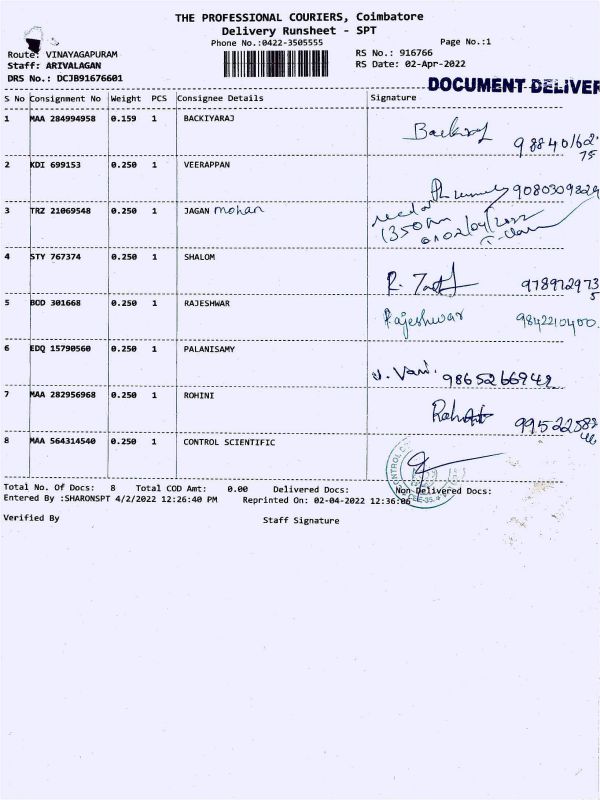 THE PROFESSIONAL COURIERS, Coimbatore
Delivery Runsheet - SPT
Phone No.:0422-3505555 Page No.:1
Route: VINAYAGAPURAM RS No.: 916766
Staff: ARIVALAGAN RS Date: 02-Apr-2022
DRS No.: DCJB91676601
DOCUMENT DELIVER
S No Consignment No Weight PCS Consignee Details Signature
1 MAA 284994958 0.159 1 BACKIYARAJ
98840162
75
2 KDI 699153 0.250 1 VEERAPPAN
9080309829
3 TRZ 21069548 0.250 1 JAGAN mohan
1350
02/04/2022
4 STY 767374 0.250 1 SHALOM
R.
978972973
5
5 BOD 301668 0.250 1 RAJESHWAR
Rajeshwar 9842210400
6 EDQ 15790560 0.250 1 PALANISAMY
V. Vani. 9865266942
7 MAA 282956968 0.250 1 ROHINI
99522583
46
8 MAA 564314540 0.250 1 CONTROL SCIENTIFIC
Total No. Of Docs: 8 Total COD Amt: 0.00 Delivered Docs: Non Delivered Docs:
Entered By :SHARONSPT 4/2/2022 12:26:40 PM Reprinted On: 02-04-2022 12:36:06
Verified By Staff Signature